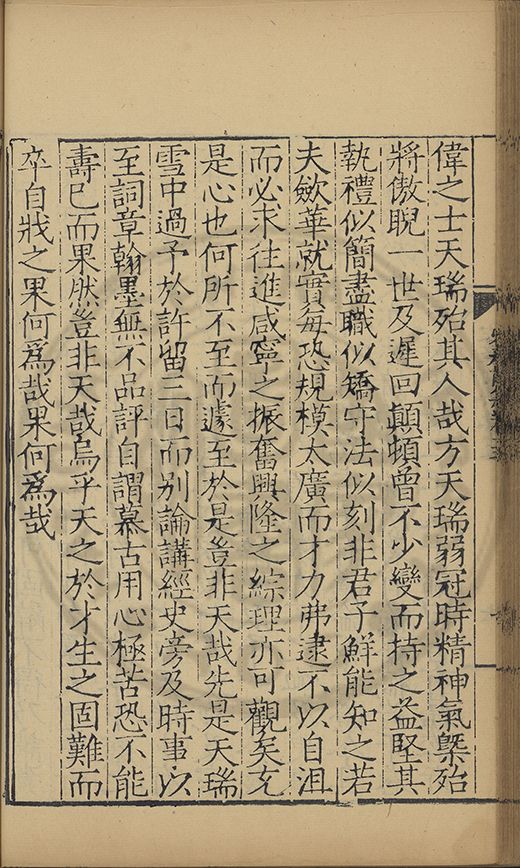 偉之士天瑞殆其人哉方天瑞弱冠時精神氣槩殆
將傲睨一世及遲回顛頓曾不少變而持之益堅其
執禮似簡盡職似矯守法似刻非君子鮮能知之若
夫歛華就實每恐規模太廣而才力弗逮不以自沮
而必求往進咸寧之振奮興隆之綜理亦可觀矣充
是心也何所不至而遽至於是豈非天哉先是天瑞
雪中過予於許留三日而別論講經史旁及時事以
至詞章翰墨無不品評自謂慕古用心極苦恐不能
壽已而果然豈非天哉烏乎天之於才生之固難而
卒自戕之果何爲哉果何爲哉